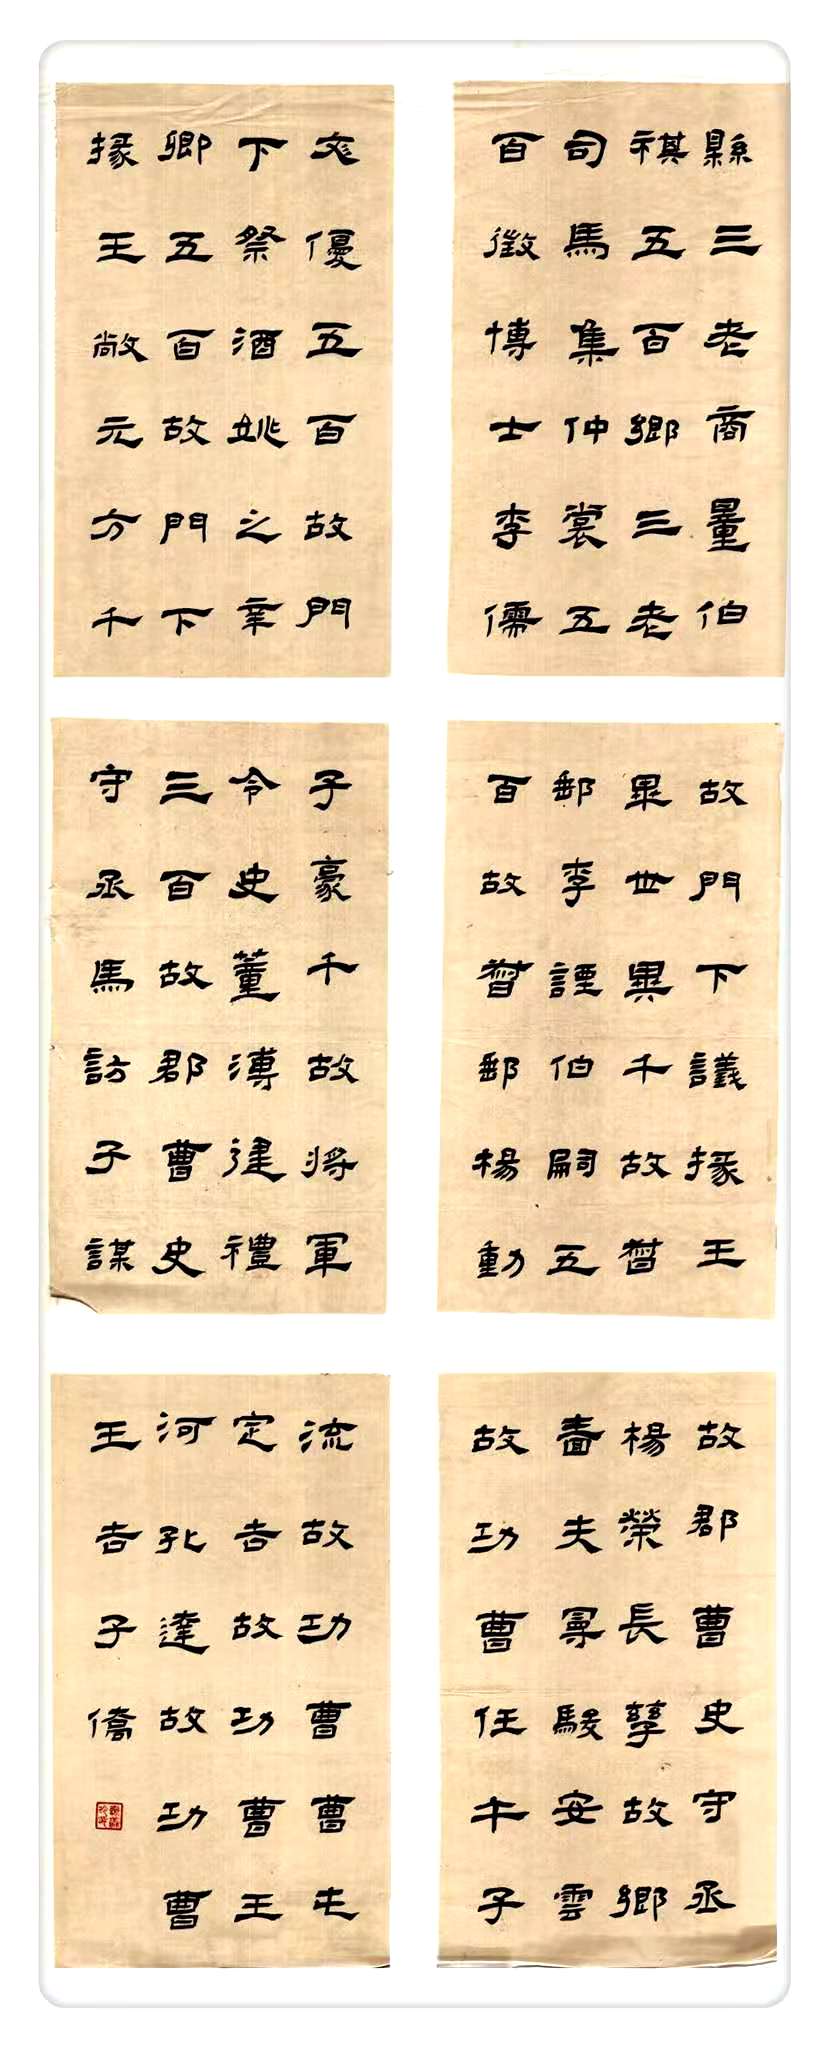 縣三老商量伯
祺五百鄉三老
司馬集仲裳五
百徵博士李儒
文優五百故門
下祭酒姚之辛
卿五百故門下
掾王敞元方千
故門下議掾王
畢世異千故督
郵李諲伯嗣五
百故督郵楊動
子豪千故將軍
令史董溥建禮
三百故郡曹史
守丞馬訪子謀
故郡曹史守丞
楊榮長孳故鄉
嗇夫曼駿安雲
故功曹任午子
流故功曹曹屯
定吉故功曹王
河孔達故功曹
王吉子僑